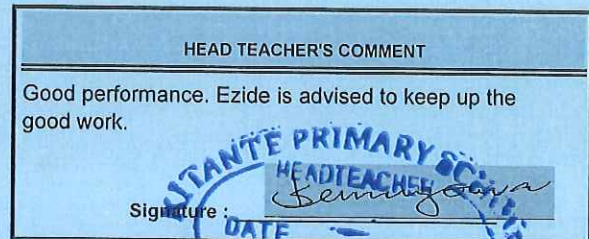 HEAD TEACHER'S COMMENT
Good performance. Ezide is advised to keep up the
good work.
KITANTE PRIMARY
HEADTEACHER
Signature :
DATE